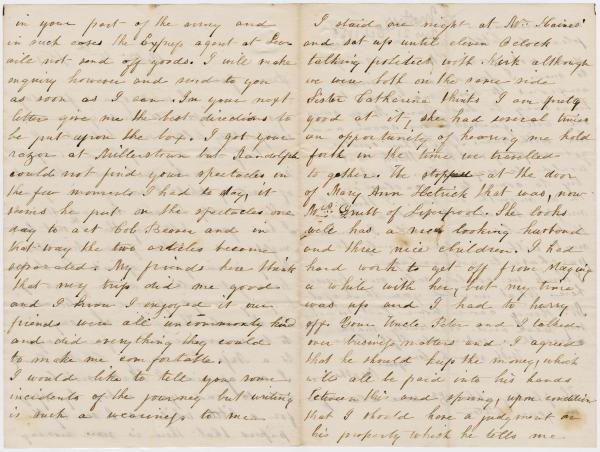 in your part of the army and
in such cases the Express agent at
will not send off goods. I will make
inquiry however and send to you
as soon as I can. In your next
letter give me the best directions to
be put upon the box. I got your
razor at Millerstown but Randolph
could not find your spectacles in
the few moments I had to stay, it
seems he put on the spectacles one
day to act Col Beaver and in
that way the two articles became
separated. My friends here think
that my trip did me good
and I know I enjoyed it our
friends were all uncommonly kind
and did everything they could
to make me comfortable.
I would like to tell you some
incidents of the journey but writing
is such a weariness to me
I staid one night at Mrs Haines'
and sat up until eleven O'clock
talking politicks with Kirk although
we were both on the same side
Sister Catherine thinks I am pretty
good at it, she had several times
an opportunity of hearing me hold
forth in the time we travelled
to gether. We stopped at the door
of Mary Ann Hetrick that was, now
of Liverpool. She looks
well has a nice looking husband
and three nice children. I had
hard work to get off from staying
a while with her, but my time
was up and I had to hurry
off. Your Uncle Peter and I talked
over business matters and I agreed
that he should keep the money, which
will all be paid into his hands
between this and spring, upon condition
that I should have a judgment on
his property which he tells me